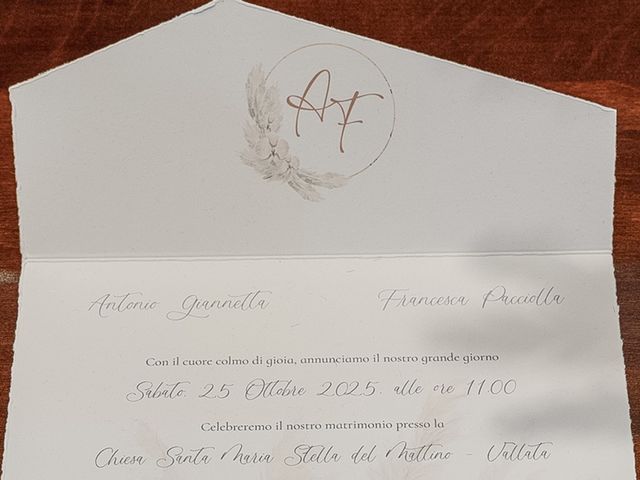 AF
Antonio Giannetta Francesca Pacciolla
Con il cuore colmo di gioia, annunciamo il nostro grande giorno
Sabato, 25 Ottobre 2025, alle ore 11.00
Celebreremo il nostro matrimonio presso la
Chiesa Santa Maria Stella del Mattino - Vallata